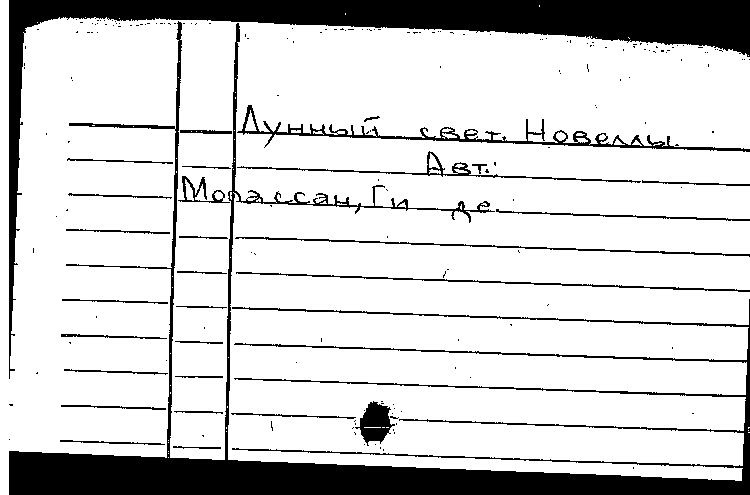 Лунный свет. Новеллы.
Авт.:
Мопассан, Ги де.